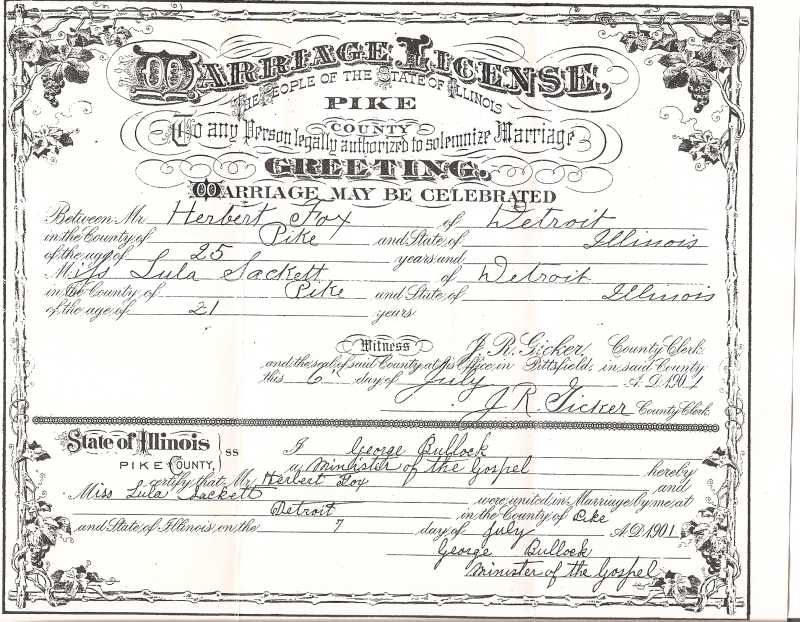 MARRIAGE LICENSE,
THE PEOPLE OF THE STATE OF ILLINOIS
PIKE
COUNTY
To any Person legally authorized to solemnize Marriage
GREETING.
MARRIAGE MAY BE CELEBRATED
Between Mr Herbert Fox of Detroit
in the County of Pike and State of Illinois
of the age of 25 years and
Miss Lula Sackett of Detroit
in the County of Pike and State of Illinois
of the age of 21 years
Witness J. R. Gicker, County Clerk
and the seal of said County at his Office in Pittsfield, in said County
this 6 day of July A.D. 1901
J. R. Gicker County Clerk
State of Illinois } ss I George Bullock
PIKE COUNTY, a Minister of the Gospel hereby
certify that Mr Herbert Fox and
Miss Lula Sackett were united in Marriage by me at
Detroit in the County of Pike
and State of Illinois, on the 7 day of July A.D. 1901
George Bullock
Minister of the Gospel